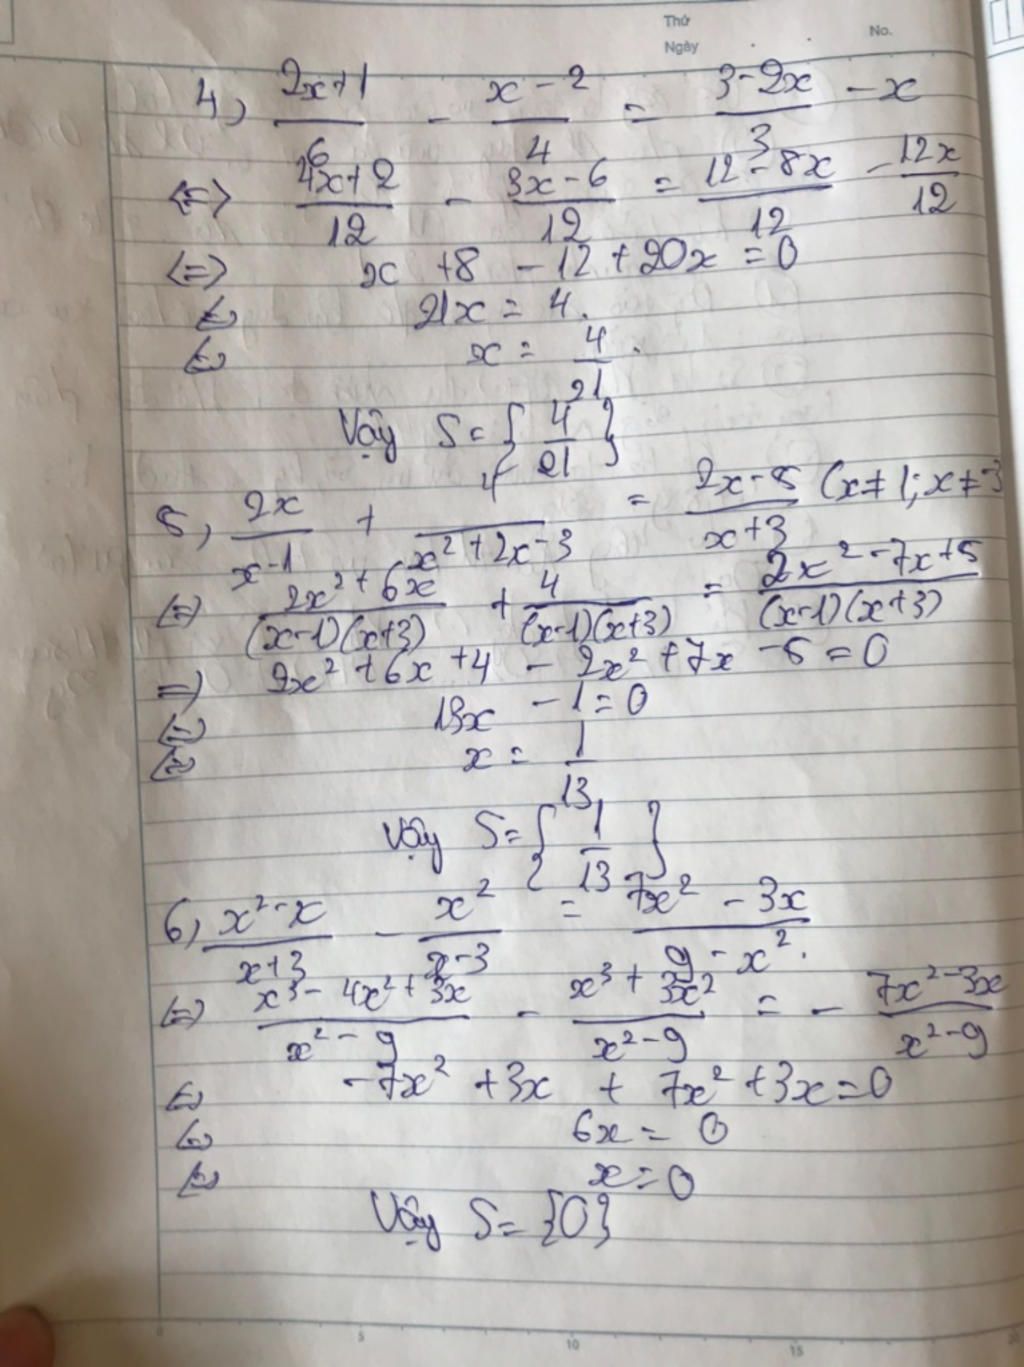 Thứ
Ngày
No.
4) (2x+1)/6 - (x-2)/4 = (3-2x)/3 - x
<=> (4x+2)/12 - (3x-6)/12 = (12-8x)/12 - 12x/12
<=> x +8 - 12 + 20x = 0
<=> 21x = 4.
<=> x = 4/21.
Vậy S = { 4/21 }
5, 2x/(x-1) + 4/(x²+2x-3) = (2x-5)/(x+3) (x≠1; x≠-3
<=> (2x²+6x)/((x-1)(x+3)) + 4/((x-1)(x+3)) = (2x²-7x+5)/((x-1)(x+3))
=> 2x² + 6x + 4 - 2x² + 7x - 5 = 0
<=> 13x - 1 = 0
<=> x = 1/13
Vậy S = { 1/13 }
6, (x²-x)/(x+3) - x²/(x-3) = (7x²-3x)/(9-x²).
<=> (x³-4x²+3x)/(x²-9) - (x³+3x²)/(x²-9) = - (7x²-3x)/(x²-9)
<=> -7x² + 3x + 7x² + 3x = 0
<=> 6x = 0
<=> x = 0
Vậy S = {0}
0 5 10 15 20